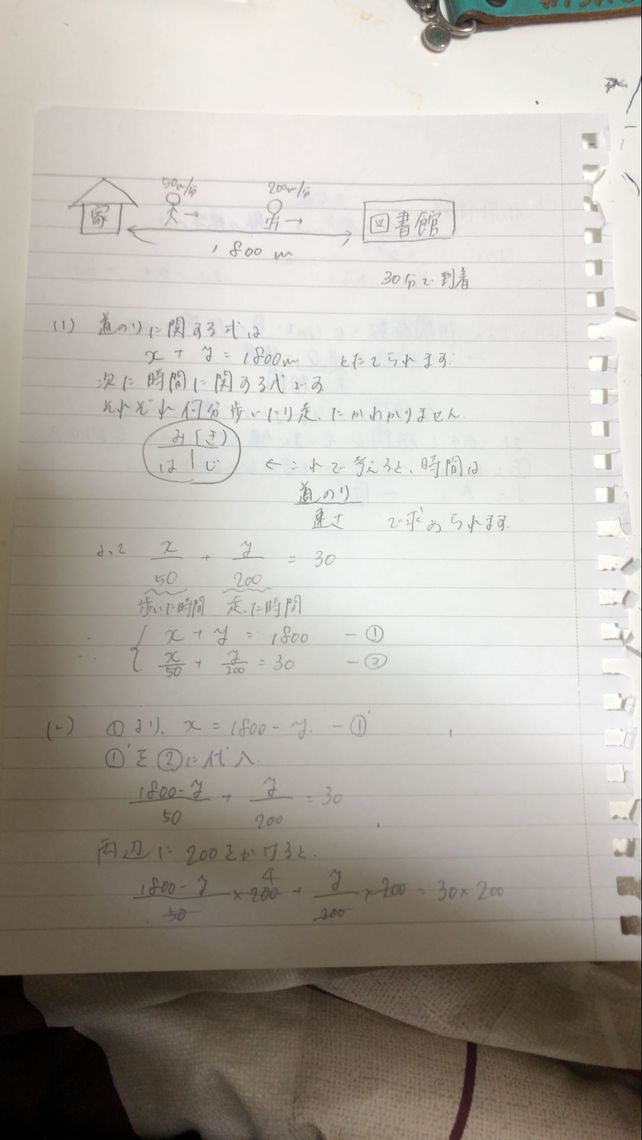 50m/分
200m/分
家
図書館
1800m
30分で到着
(1) 道のりに関する式は
x + y = 1800m とたてられます
次に時間に関する式です
それぞれ何分歩いたり走ったかわかりません
み(き)
は | じ
← これで考えると、時間は
道のり
速さ
で求められます
よって x/50 + y/200 = 30
歩いた時間 走った時間
∴ { x + y = 1800 - ①
x/50 + y/200 = 30 - ②
(2) ①より、x = 1800 - y - ①'
①'を②に代入
1800-y/50 + y/200 = 30
両辺に200をかけると、
4
1800-y/50 × 200 + y/200 × 200 = 30×200